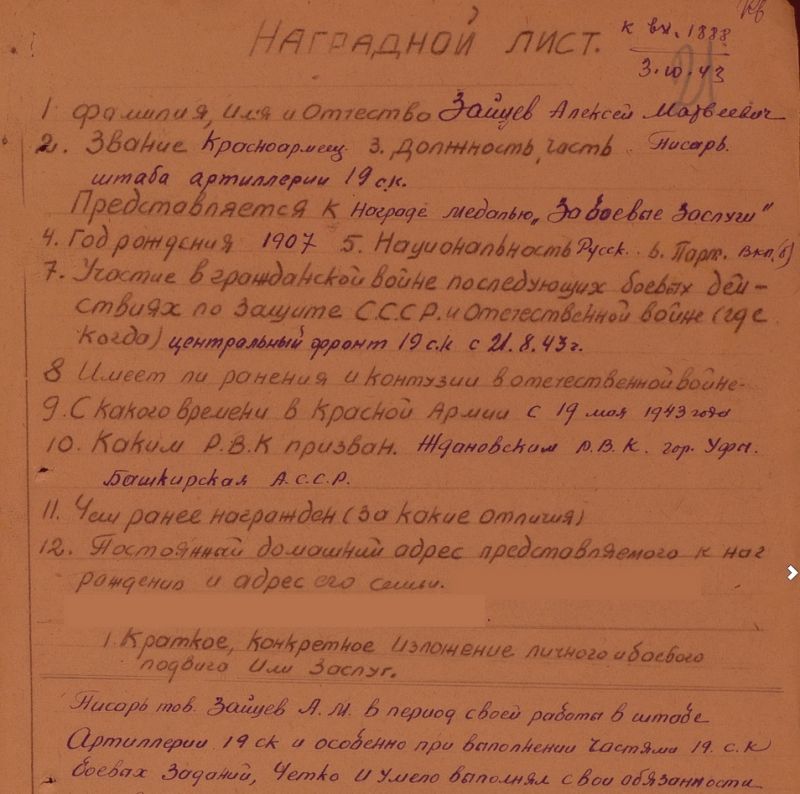 НАГРАДНОЙ ЛИСТ.
к вх. 1888
3.10.43
21
1 Фамилия, Имя и Отчество Зайцев Алексей Матвеевич
2. Звание Красноармец. 3. Должность, часть Писарь.
штаба артиллерии 19 с.к.
Представляется к Награде медалью „За боевые заслуги"
4. Год рождения 1907 5. Национальность Русск. 6. Парт. ВКП(б)
7. Участие в гражданской войне последующих боевых дей-
ствиях по защите С.С.С.Р. и Отечественной войне (где
когда) центральный фронт 19 с.к с 21.8.43 г.
8 Имеет ли ранения и контузии в отечественной войне-
9. С какого времени в Красной Армии с 19 мая 1943 года
10. Каким Р.В.К призван. Ждановским Р.В.К. гор. Уфы.
Башкирская А.С.С.Р.
11. Чем ранее награжден (за какие отличия)
12. Постоянный домашний адрес представляемого к наг
раждению и адрес его семьи.
1. Краткое, конкретное изложение личного и боевого
подвига или заслуг.
Писарь тов. Зайцев А.М. в период своей работы в штабе
Артиллерии 19 ск и особенно при выполнении частями 19 с.к
боевых заданий, четко и умело выполнял свои обязанности